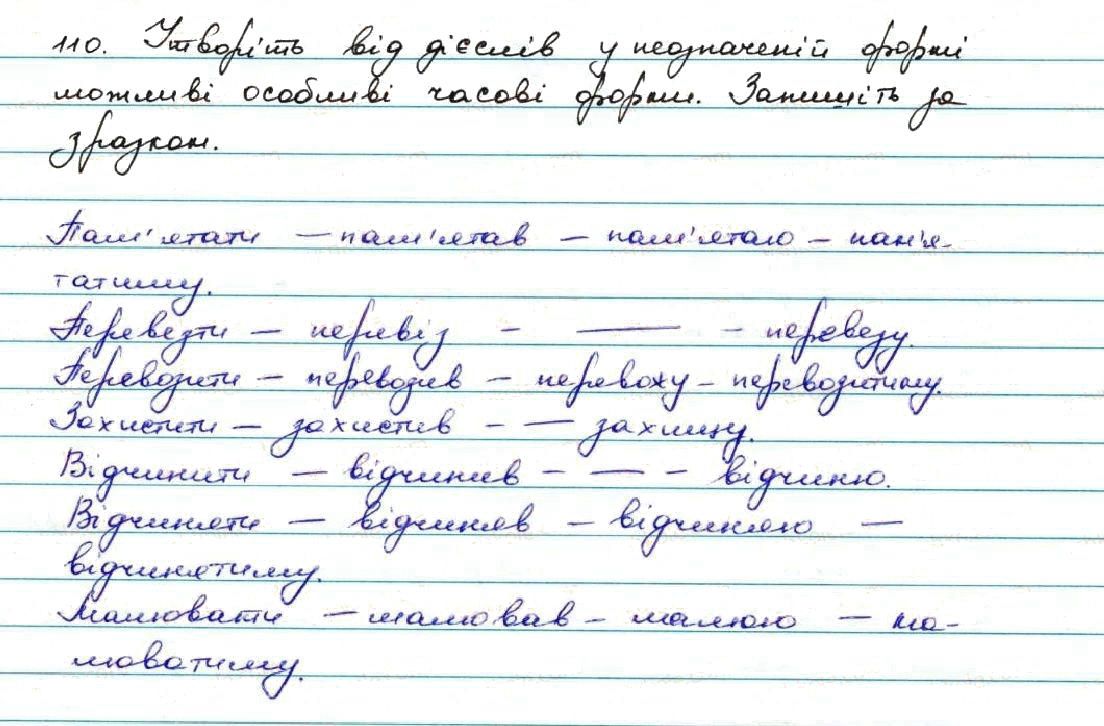 110. Утворіть від дієслів у неозначеній формі
можливі особливі часові форми. Запишіть за
зразком.
Пам'ятати — пам'ятав — пам'ятаю — пам'я-
татиму.
Перевезти — перевіз - — - перевезу.
Перевозити — перевозив — перевожу — перевозитиму.
Захистити — захистив - — захищу.
Відчинити — відчинив - — - відчиню.
Відчиняти — відчиняв — відчиняю —
відчинятиму.
Малювати — малював - малюю — ма-
люватиму.